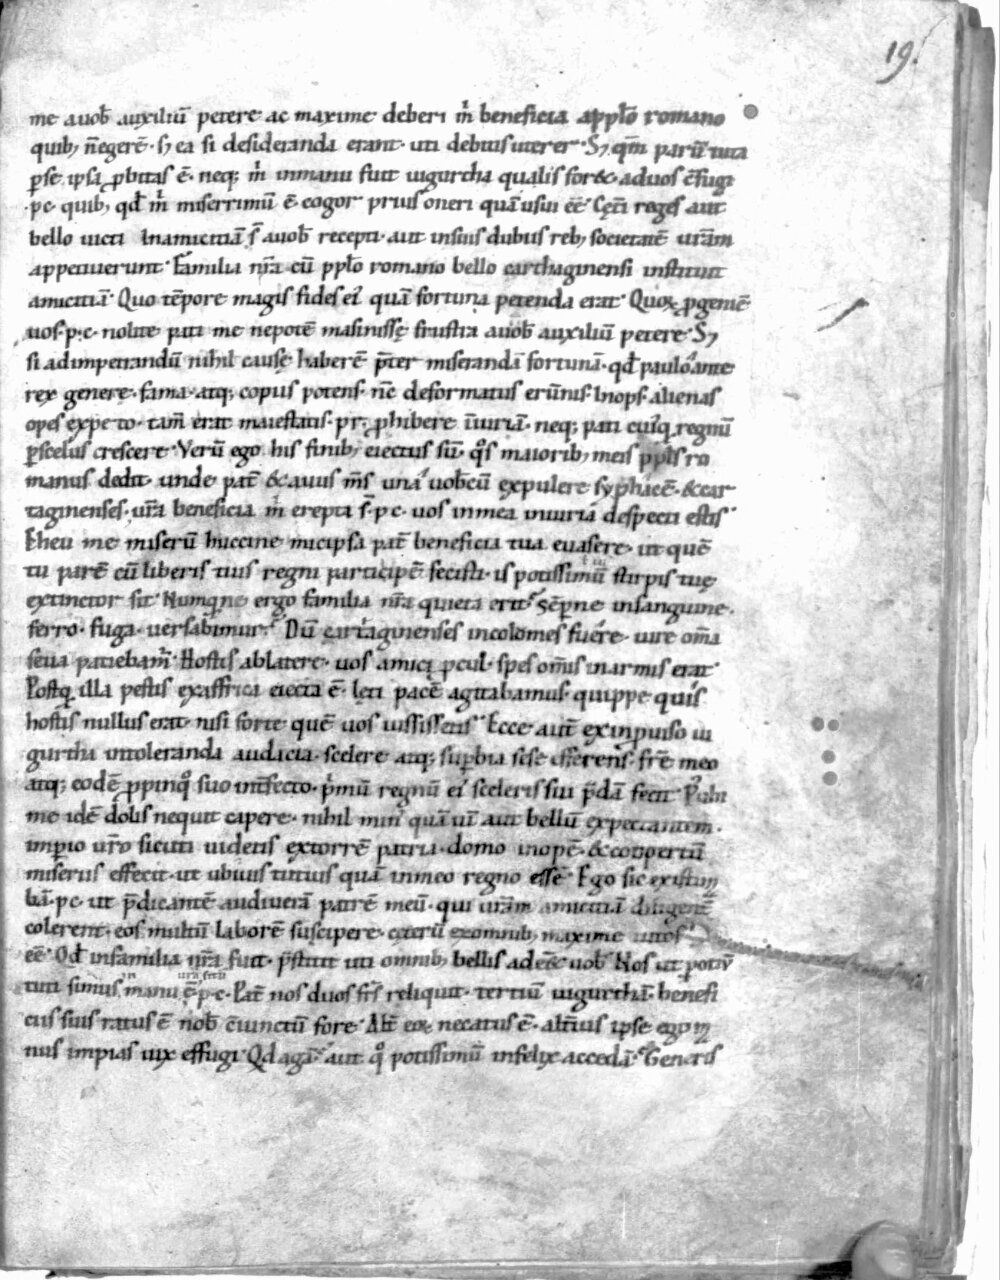 19.
me auob̄ auxiliū petere ac maxime deberi m̄ beneficia appl̄o romano
quib; n̄egerē· s; ea si desideranda erant· uti debitis uterer· S; qm̄ parū tuta
ꝑse ipsa ꝓbitas ē· neq; m̄ inmanu fuit iugurtha qualis for&· aduos c̄fugi
·pc· quib; qd̄ m̄ miserrimū ē cogor prius oneri quā usui eē· Cęt̄i reges aut
bello uicti inamicitiā s̄ auob̄ recepti· aut insuis dubiis reb; societatē ur̄am
appetiuerunt· Familia nr̄a cū ppl̄o romano bello carthaginensi instituit
amicitiā· Quo tēpore magis fides ei᾽ quā fortuna petenda erat· Quoꝝ ꝓgeniē
uos·p·c· nolite pati me nepotē masinissę frustra auob̄ auxiliū petere· S;
si adimpetrandū nihil causę haberē p̄ter miserandā fortunā· qd̄ paulo᾽ante
rex genere· fama· atq; copiis potens· n̄c deformatus erūnis· Inops· alienas
opes expeto· tam̄ erat maiestatis· pr· ꝓhibere iniuriā· neq; pati cui᾽q regnū
ꝑscelus crescere· Verū ego his finib; eiectus sū· q̊s maiorib; meis ppl̄s ro
manus dedit· unde pat̄ & auus m̄s una᾽ uob̄cū expulere syphacē· & car
taginenses· ur̄a beneficia m̄ erepta s̄· p c· uos inmea iniuria despecti estis·
Eheu me miserū huccine micipsa pat̄ beneficia tua euasere· ut quē
tu parē cū liberis tuis regni participē fecisti· is potissimū stirpis tuę
extinctor sit· Numq̄ne ergo familia nr̄a quieta erit· Sēꝑne insanguine·
ferro· fuga· uersabimur· Dū cartaginenses incolomes fuere· iure om̄a
seua patiebam᾽· Hostis ablatere· uos amici ꝓcul· spes om̄is inarmis erat·
Postq̄ illa pestis exaffrica eiecta ē· lęti pacē agitabamus· quippe quis
hostis nullus erat· nisi forte quē uos iussissetis· Ecce aut̄ exinpuiso iu
gurtha intoleranda audacia· scelere atq; suꝑbia sese efferens· fr̄e meo
atq; eodē ꝓpinq̊ suo int̄fecto· p̄mū regnū ei᾽ sceleris sui p̄dā fecit· P᾽ubi
me idē dolis nequit capere· nihil min᾽ quā uī aut bellū expectantem·
imꝑio ur̄o sicuti uidetis extorrē patria· domo inopē· & coopertū
miseriis effecit· ut ubiuis tutius quā inmeo regno esse· Ego sic existim
bā· pc· ut p̄dicantē audiuerā patrē meū· qui ur̄am amicitiā diligent̄
colerent· eos multū laborē suscipere· cęterū exomnib; maxime tutos
eē· Qd̄ infamilia nr̄a fuit· p̄stitit uti omnib; bellis ad eēt uob̄· Nos ut
tuti simus· manu ē p·c· Pat̄ nos duos fr̄s reliquit· tertiū iugurthā· benefi
ciis suis ratus ē nob̄ c̄iunctū fore· Alt̄ eoꝝ necatus ē· alt̄ius ipse ego m
nus impias uix effugi· Qd agā· aut q̊ potissimū infelix accedā· Generis